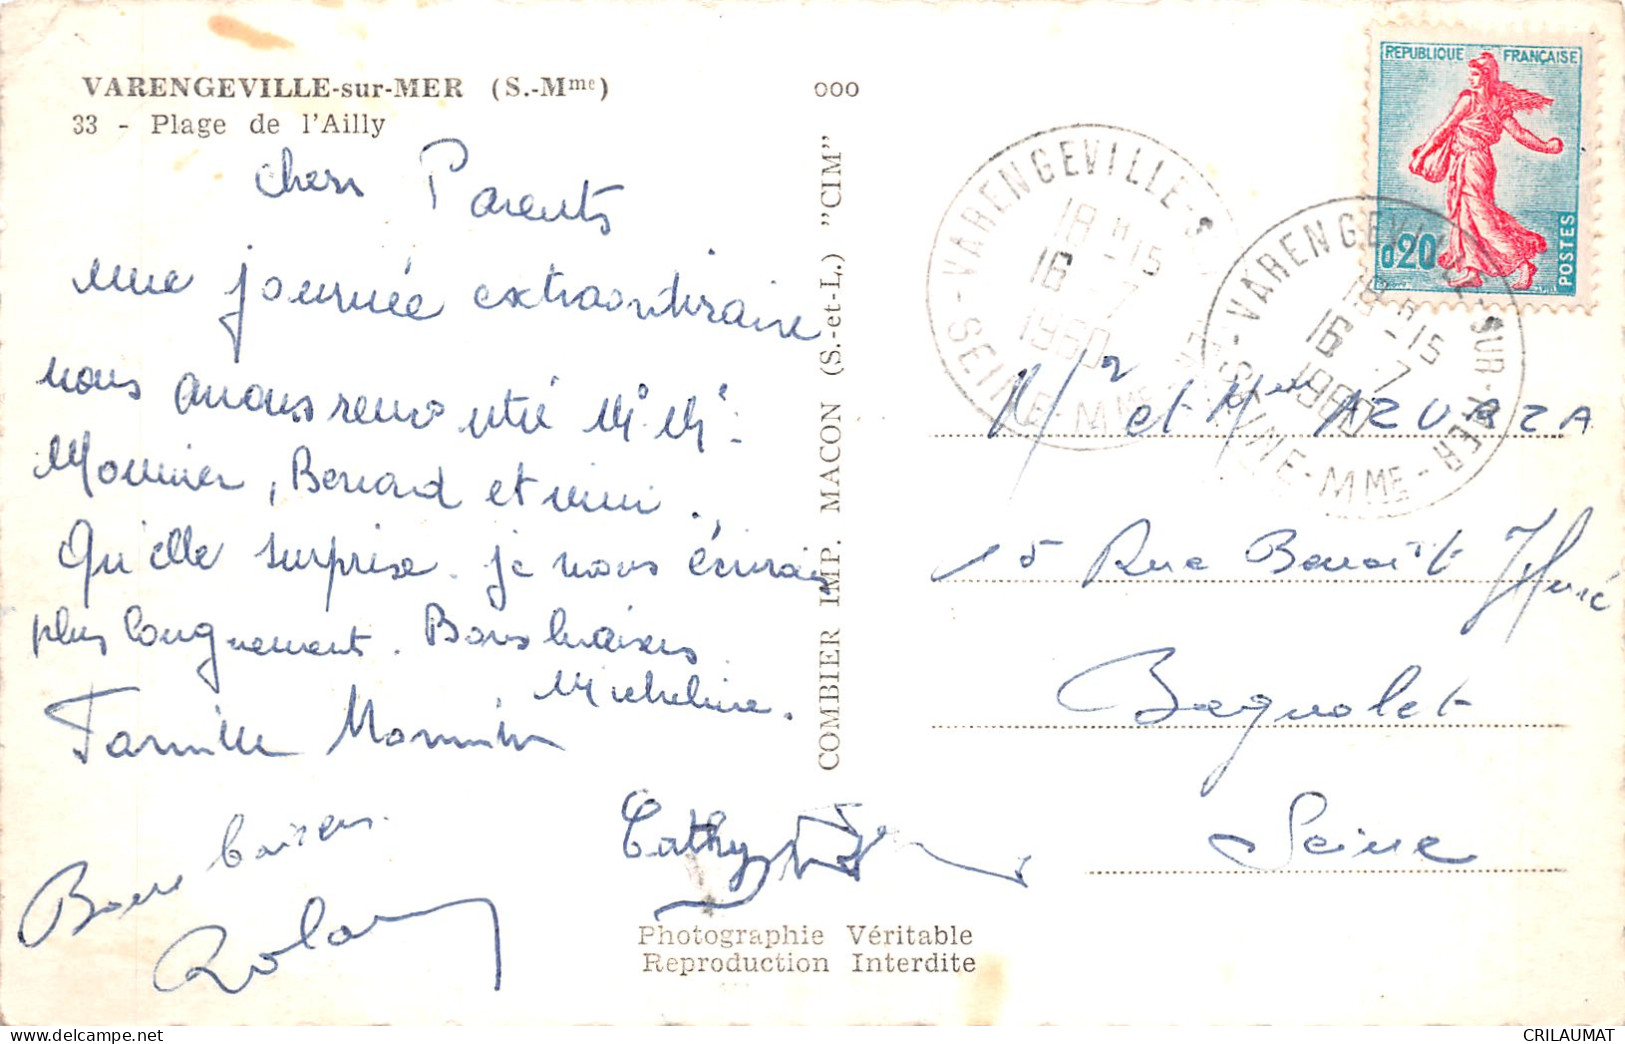 VARENGEVILLE-sur-MER (S.-Mme)
33 - Plage de l'Ailly
000
chers Parents
une journée extraordinaire
nous avons rencontré Mr Mme
Monnier, Bernard et
Qu'elle surprise. je vous écrirais
plus longuement. Bons baisers
Micheline.
Famille Monnier
Bons baisers
Roland
Cathy
COMBIER IMP. MACON (S.-et-L.) "CIM"
Photographie Véritable
Reproduction Interdite
REPUBLIQUE FRANÇAISE
0,20
POSTES
VARENGEVILLE-SUR-MER
18 H -15
16 - 7
1960
SEINE-MME
VARENGEVILLE-SUR-MER
18 H -15
16 - 7
1960
SEINE-MME
Mr et Mme AZUARA
15 Rue Benoît Huré
Bagnolet
Seine
CRILAUMAT